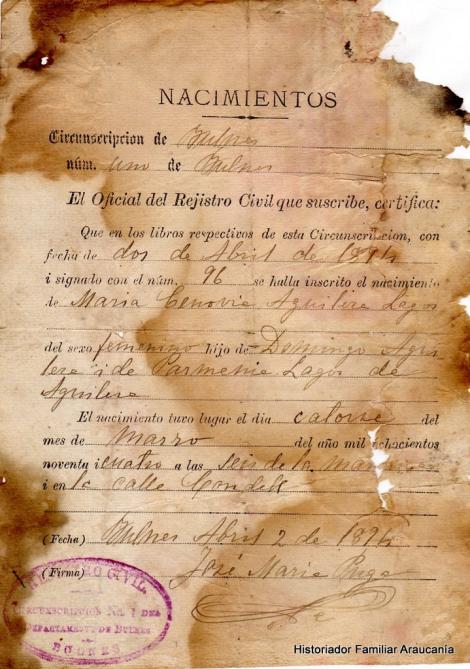 NACIMIENTOS
Circunscripcion de Bulnes
núm. uno de Bulnes
El Oficial del Rejistro Civil que suscribe, certifica:
Que en los libros respectivos de esta Circunscripcion, con
fecha de dos de Abril de 1894
i signado con el núm. 96 se halla inscrito el nacimiento
de Maria Cenovia Aguilera Lagos
del sexo femenino hijo de Domingo Agui
lera i de Parmenia Lagos de
Aguilera
El nacimiento tuvo lugar el dia catorse del
mes de Marzo del año mil ochocientos
noventa i cuatro a las seis de la mañana
i en la calle Condell
(Fecha) Bulnes Abril 2 de 1894
(Firma) José Maria Puga
REGISTRO CIVIL
CIRCUNSCRIPCION No. 1 DEL
DEPARTAMENTO DE BULNES
BULNES
Historiador Familiar Araucanía